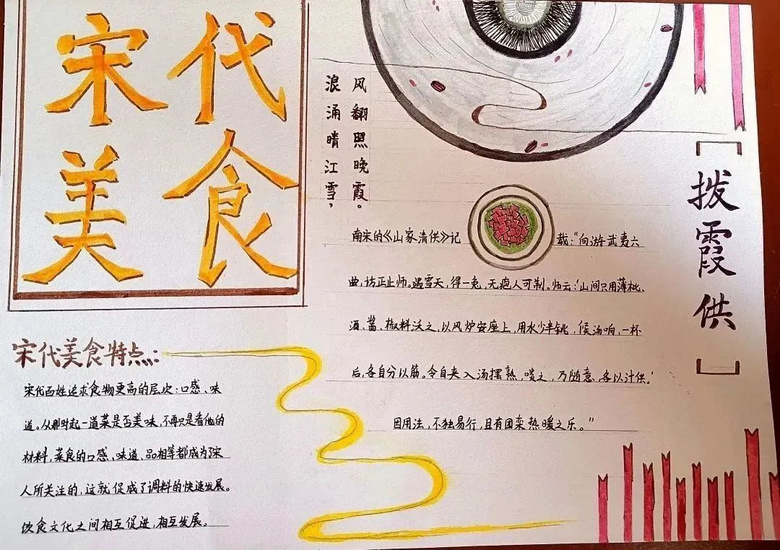 宋代
美食
浪涌晴江雪，
风翻照晚霞。
[拨霞供]
南宋的《山家清供》记载："向游武夷六
曲，访正止师。遇雪天，得一兔，无庖人可制。师云：'山间只用薄批、
酒、酱、椒料沃之，以风炉安座上，用水少半铫，候汤响，一杯
后，各自分以筋。令自夹入汤摆熟，啖之，乃随意，各以汁供。'
因用法，不独易行，且有团栾热暖之乐。"
宋代美食特点：
宋代百姓追求食物更高的层次：口感、味
道。从那时起一道菜是否美味，不再只是看他的
材料，菜食的口感、味道、品相等都成为了宋
人所关注的，这就促成了调料的快速发展。
饮食文化之间相互促进，相互发展。